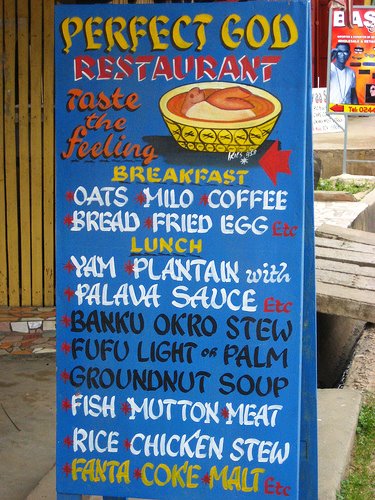 PERFECT GOD
RESTAURANT
Taste
the
feeling
BREAKFAST
*OATS *MILO *COFFEE
*BREAD *FRIED EGG Etc
LUNCH
*YAM *PLANTAIN with
*PALAVA SAUCE Etc
*BANKU OKRO STEW
*FUFU LIGHT OR PALM
*GROUNDNUT SOUP
*FISH *MUTTON *MEAT
*RICE *CHICKEN STEW
*FANTA *COKE *MALT Etc
BAS
Tel: 0244